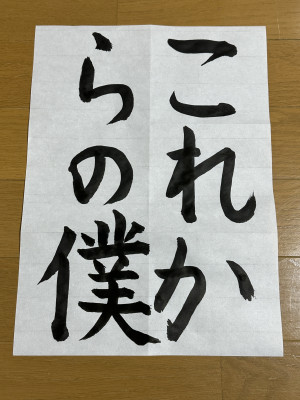 これか
らの僕